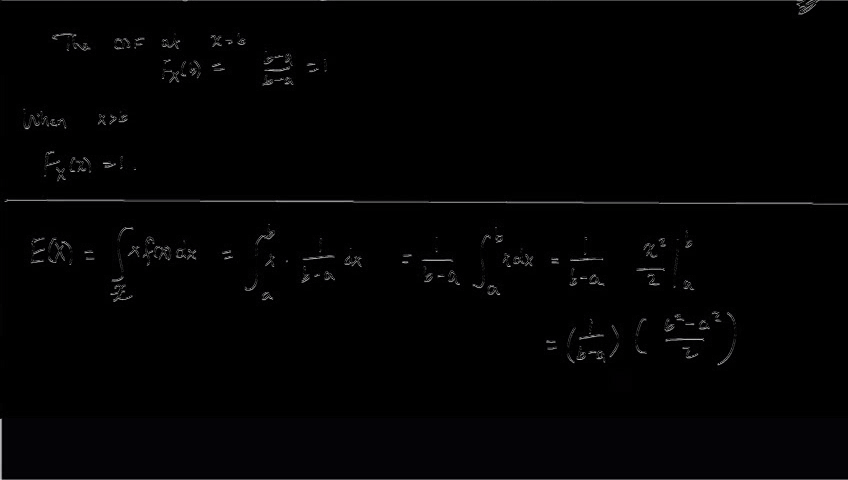 The CDF at x=b
F_X(b) = \frac{b-a}{b-a} = 1
When x>b
F_X(x) = 1.
E(X) = \int_{\mathcal{X}} x f(x) dx = \int_a^b x \cdot \frac{1}{b-a} dx = \frac{1}{b-a} \int_a^b x dx = \frac{1}{b-a} \frac{x^2}{2} |_a^b
= (\frac{1}{b-a}) (\frac{b^2-a^2}{2})